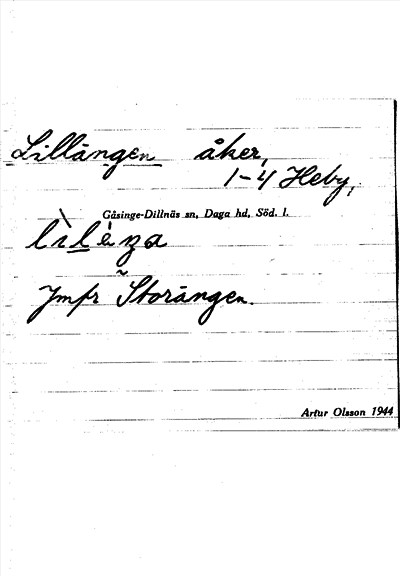 Lillängen åker,
1-4 Heby,
Gåsinge-Dillnäs sn, Daga hd, Söd. l.
Jmfr Storängen.
Artur Olsson 1944